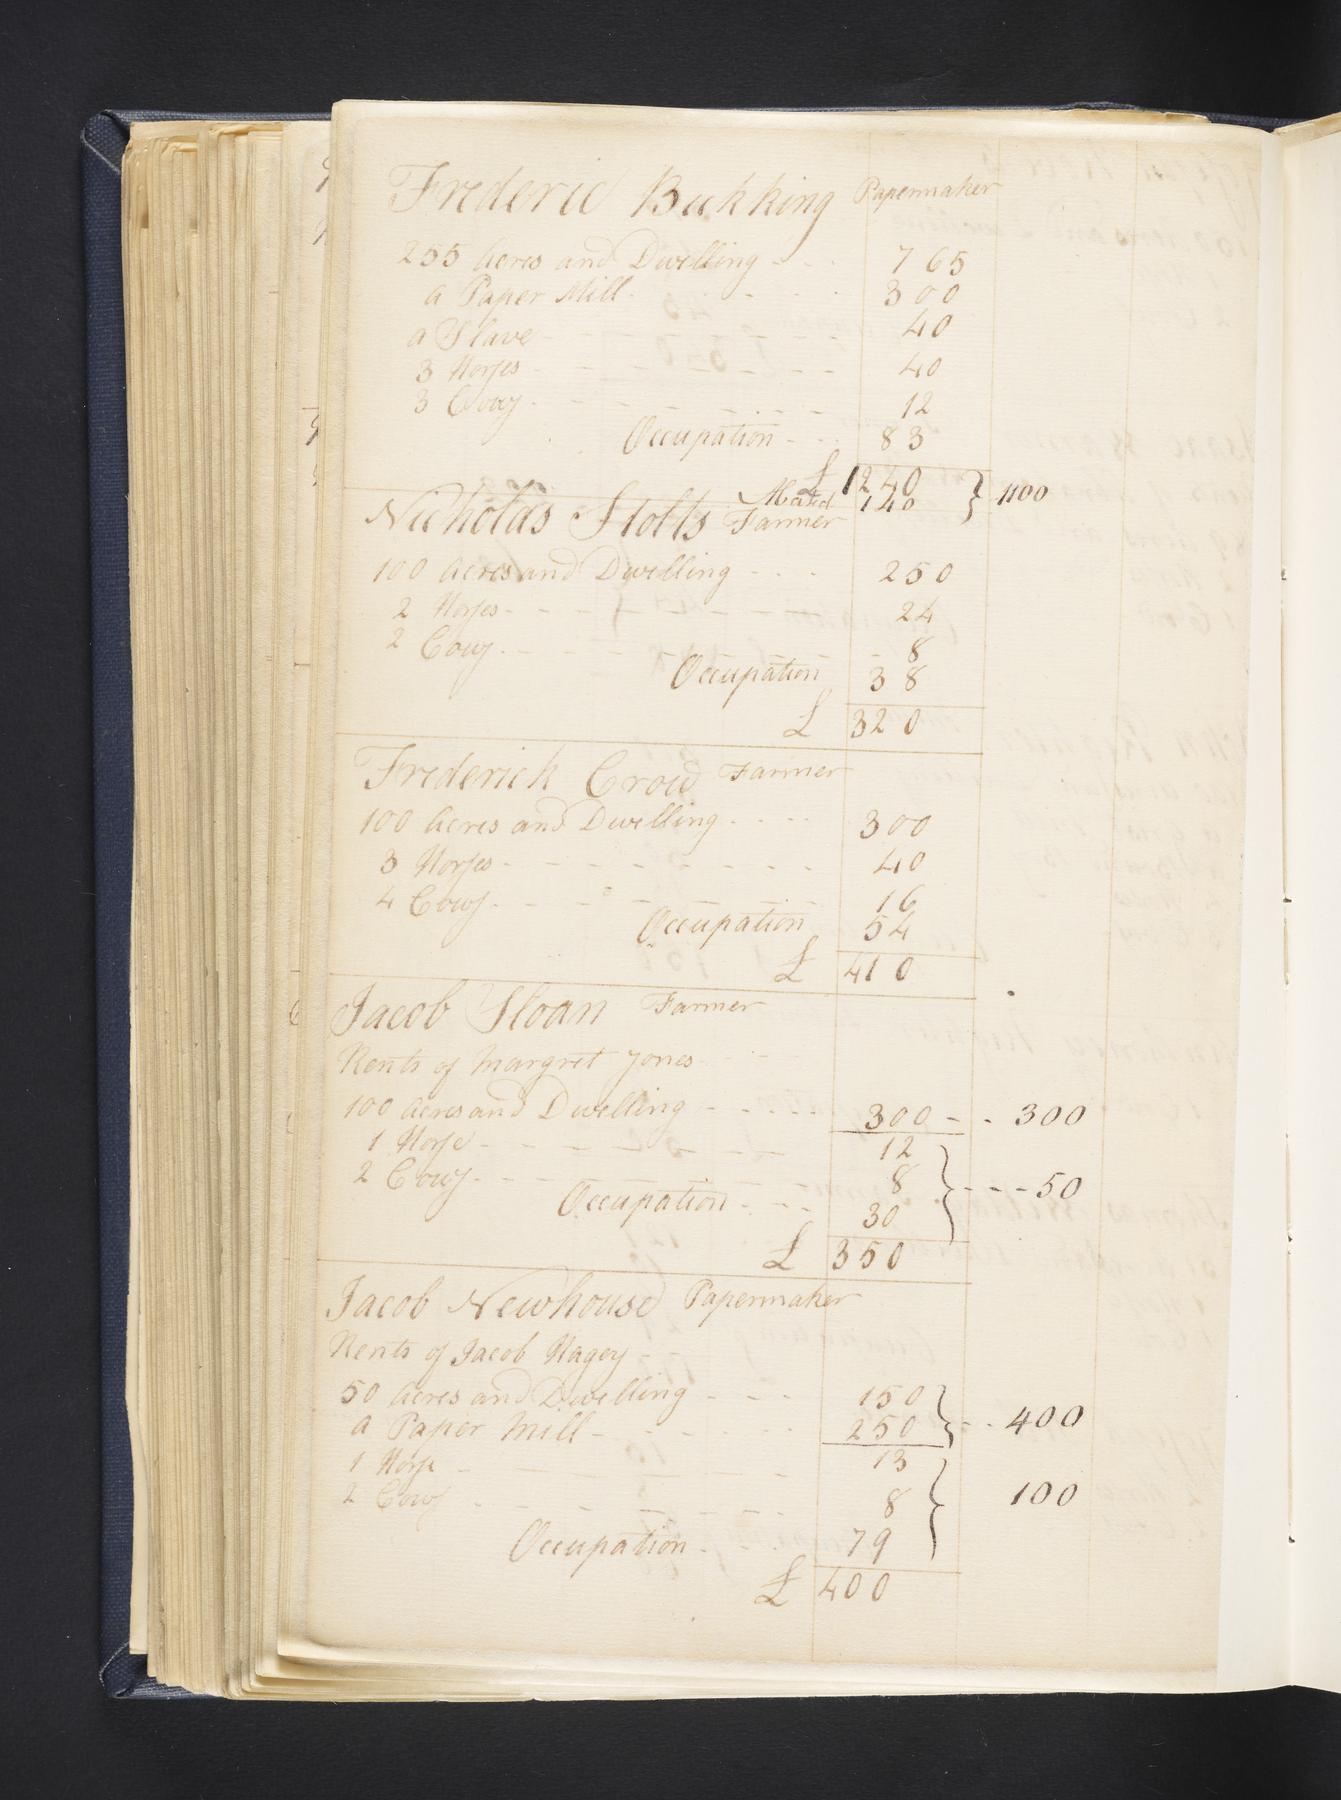 Frederic Bickking Papermaker
255 Acres and Dwelling - - - 765
a Paper Mill - - - 300
a Slave - - - 40
3 Horses - - - 40
3 Cows - - - 12
Occupation - - - 83
£ 1240
Abated 140 } 1100
Nicholas Stolls Farmer
100 Acres and Dwelling - - - 250
2 Horses - - - 24
2 Cows - - - 8
Occupation 38
£ 320
Frederick Crow Farmer
100 Acres and Dwelling - - - 300
3 Horses - - - 40
4 Cows - - - 16
Occupation 54
£ 410
Jacob Sloan Farmer
Rents of Margret Jones
100 Acres and Dwelling - - - 300 - - 300
1 Horse - - - 12
2 Cows - - - 8 } - - - 50
Occupation - - - 30
£ 350
Jacob Newhouse Papermaker
Rents of Jacob Hagey -
50 Acres and Dwelling - - - 150
a Paper Mill - - - 250 } - - 400
1 Horse - - - 13
2 Cows - - - 8 } 100
Occupation - 79
£ 400